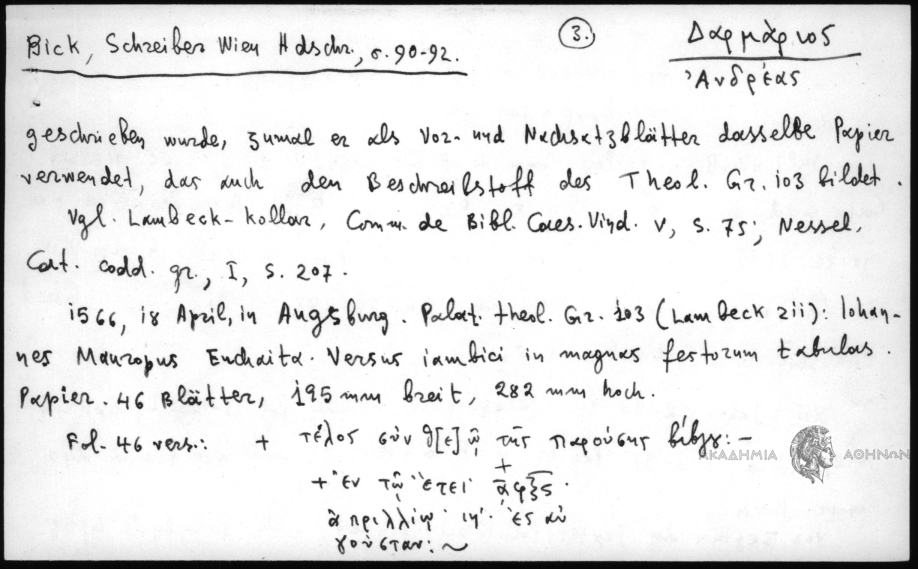 Bick, Schreiber Wien Hdschr., σ. 90-92.
3.
Δαρμάριος
Ἀνδρέας
geschrieben wurde, zumal er als Vor- und Nachsatzblätter dasselbe Papier
verwendet, das auch den Beschreibstoff des Theol. Gr. 103 bildet.
Vgl. Lambeck-Kollar, Comm. de Bibl. Caes. Vind. V, S. 75; Nessel,
Cat. codd. gr., I, S. 207.
1566, 18 April, in Augsburg. Palat. theol. Gr. 103 (Lambeck 211): Iohan-
nes Mauropus Euchaita. Versus iambici in magnas festorum tabulas.
Papier. 46 Blätter, 195 mm breit, 282 mm hoch.
Fol. 46 vers.: + τέλος σὺν θ[ε]ῷ τῆς παρούσης βίβλου: –
+ ἐν τῷ ἔτει ͵αφξϛ.
ἀπριλλίῳ ιη΄ ἐς αὐ
γούσταν: ~
ΑΚΑΔΗΜΙΑ ΑΘΗΝΩΝ